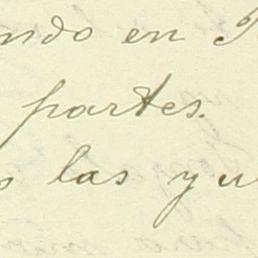 ndo en
partes.
s las yu